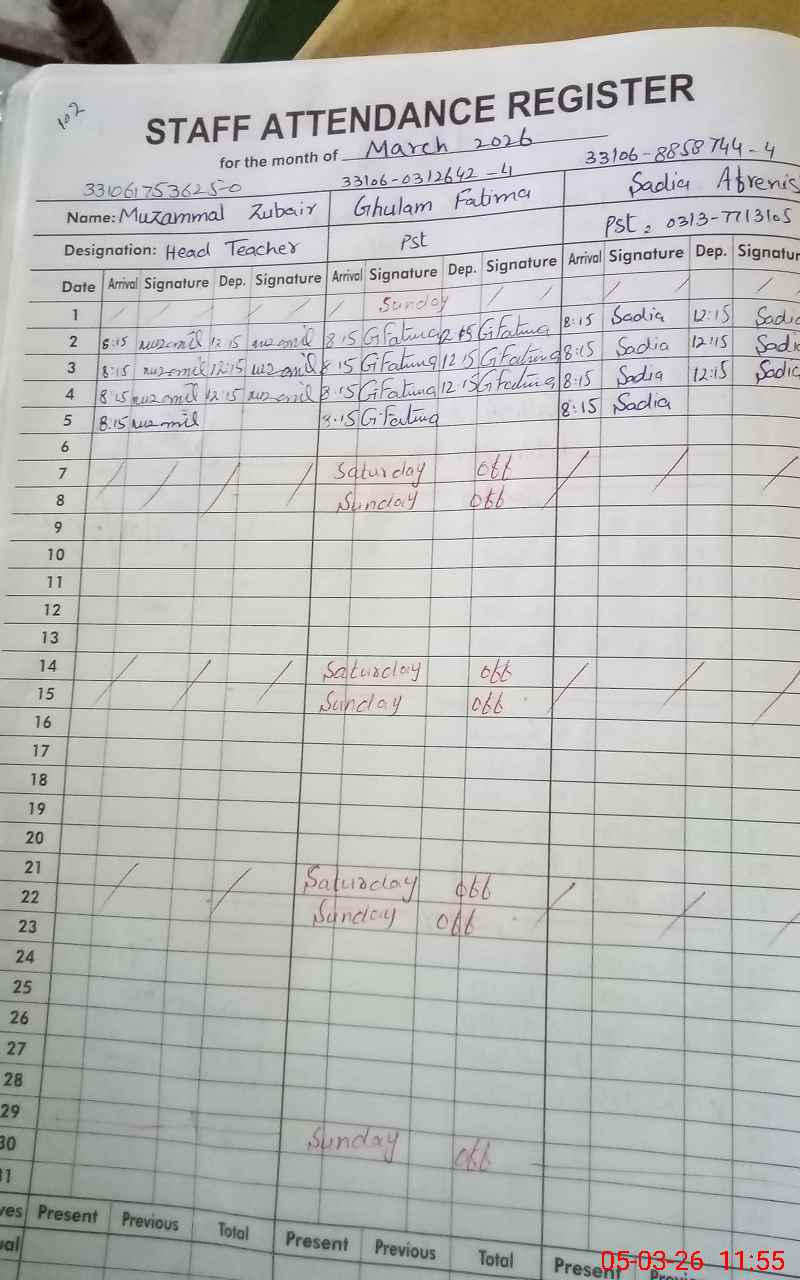 102
STAFF ATTENDANCE REGISTER
for the month of March 2026
3310617536250 33106-0312642-4 33106-8858744-4
Name: Muzammal Zubair Ghulam Fatima Sadia
Designation: Head Teacher Pst Pst: 0313-7713105
Date Arrival Signature Dep. Signature Arrival Signature Dep. Signature Arrival Signature Dep. Signatur
1 Sunday
2 8:15 muzamil 12:15 muzamil 8:15 G Fatima 12:15 G Fatima 8:15 Sadia 12:15 Sadia
3 8:15 muzamil 12:15 muzamil 8:15 G Fatima 12:15 G Fatima 8:15 Sadia 12:15 Sadia
4 8:15 muzamil 12:15 muzamil 8:15 G Fatima 12:15 G Fatima 8:15 Sadia 12:15 Sadia
5 8:15 muzamil 8:15 G Fatima 8:15 Sadia
6
7 Saturday off
8 Sunday off
9
10
11
12
13
14 Saturday off
15 Sunday off
16
17
18
19
20
21 Saturday off
22 Sunday off
23
24
25
26
27
28
29
30 Sunday off
31
ves Present Previous Total Present Previous Total Present
ual
05-03-26 11:55